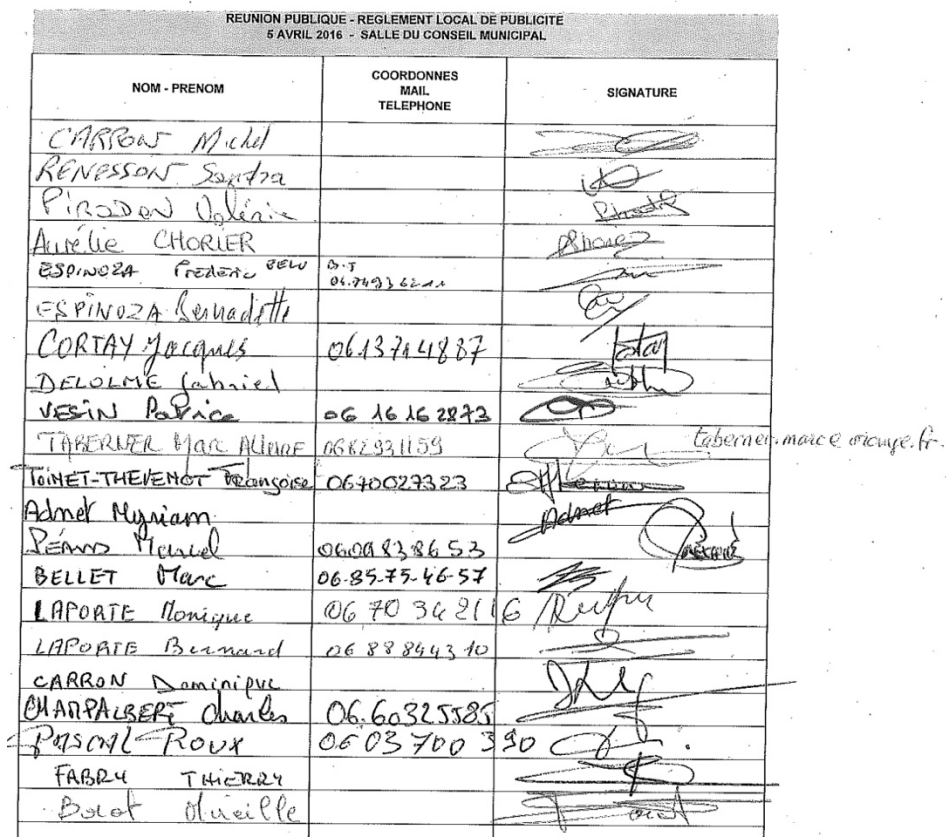 REUNION PUBLIQUE - REGLEMENT LOCAL DE PUBLICITE
5 AVRIL 2016 - SALLE DU CONSEIL MUNICIPAL
NOM - PRENOM
COORDONNES
MAIL
TELEPHONE
SIGNATURE
CARRON Michel
RENESSON Sandra
PIRODON Valérie
Aurélie CHORIER
ESPINOZA Frederic
ESPINOZA Bernadette
CORTAY Jacques 0613714887
DELOLME Gabriel
VESIN Patrice 06 16 16 2873
TABERNER Marc 0682931159 taberner.marc@orange.fr
TOINET-THEVENOT Françoise 0670027323
Adnet Myriam Adnet
Marcel
BELLET Marc 06-85-75-46-57
LAPORTE Monique 06 70 34 21 16
LAPORTE Bernard 06 88 84 43 10
CARRON Dominique
CHAMPALBERT Charles 06.60325585
PASCAL ROUX 0603700390
FABRY THIERRY
Mireille